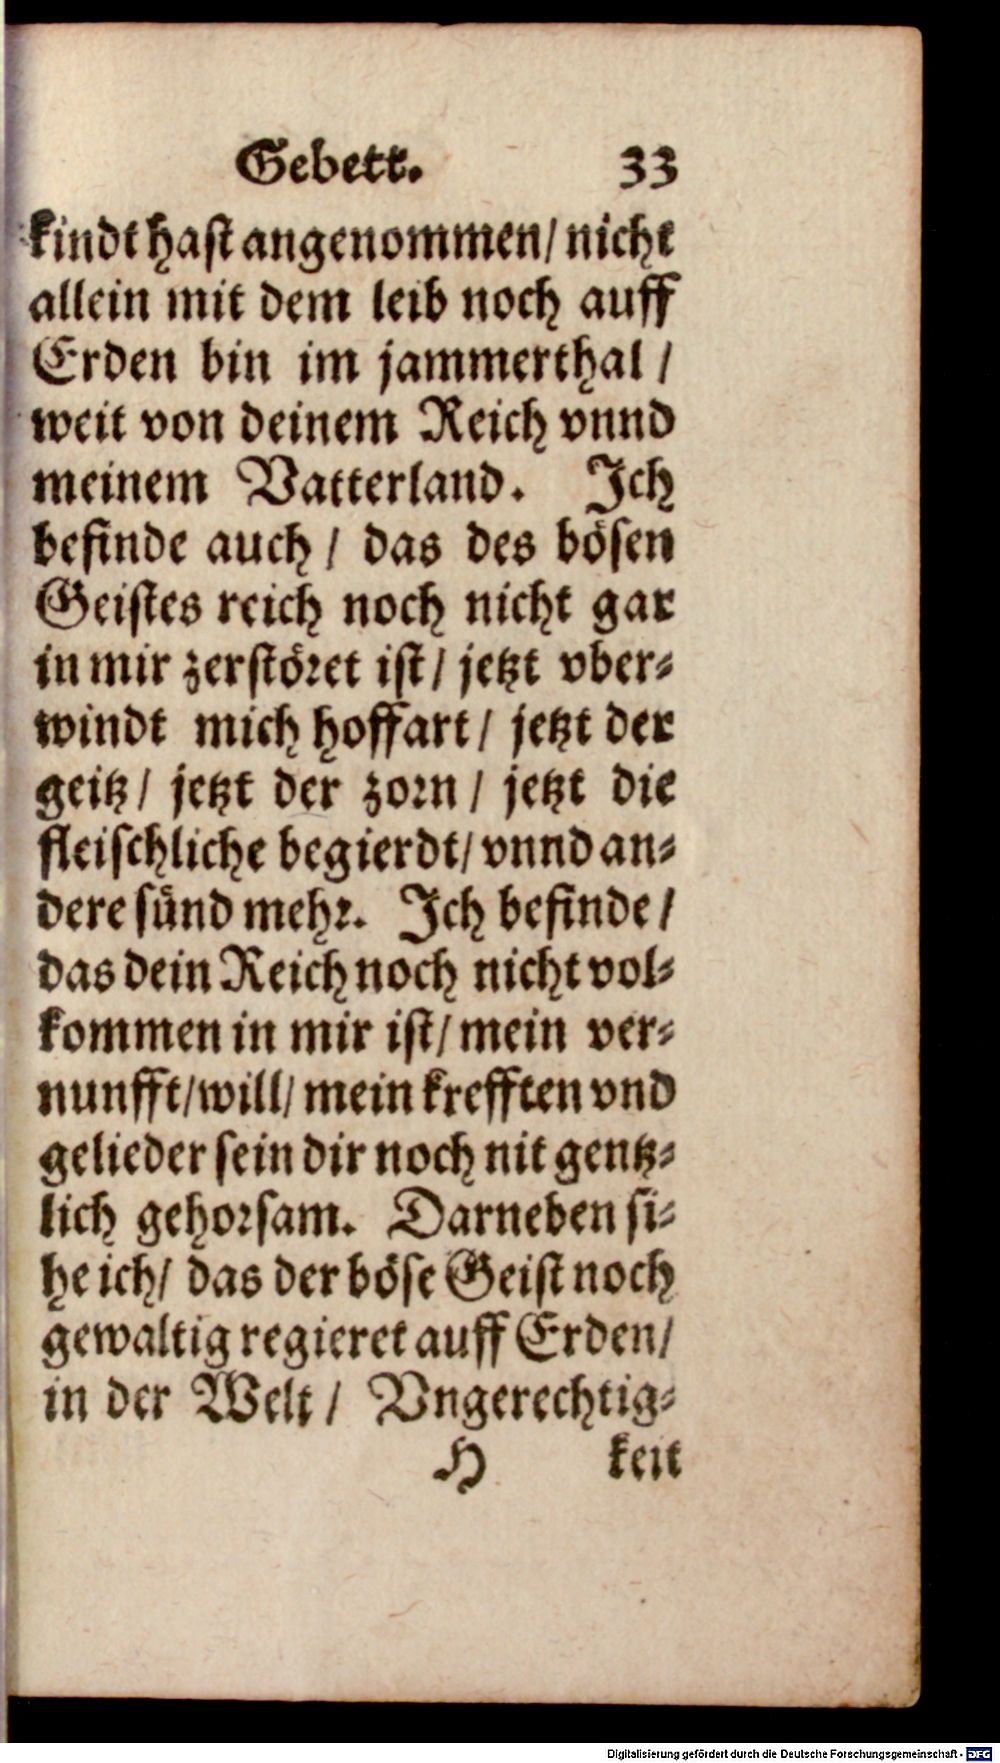 Gebett. 33
kindt hast angenommen/ nicht
allein mit dem leib noch auff
Erden bin im jammerthal /
weit von deinem Reich vnnd
meinem Vatterland. Ich
befinde auch / das des bösen
Geistes reich noch nicht gar
in mir zerstöret ist / jetzt vber⸗
windt mich hoffart / jetzt der
geitz / jetzt der zorn / jetzt die
fleischliche begierdt/ vnnd an⸗
dere sünd mehr. Ich befinde /
das dein Reich noch nicht vol⸗
kommen in mir ist/ mein ver⸗
nunfft/will/ mein krefften vnd
gelieder sein dir noch nit gentz⸗
lich gehorsam. Darneben si⸗
he ich/ das der böse Geist noch
gewaltig regieret auff Erden/
in der Welt / Vngerechtig⸗
H keit
Digitalisierung gefördert durch die Deutsche Forschungsgemeinschaft - DFG